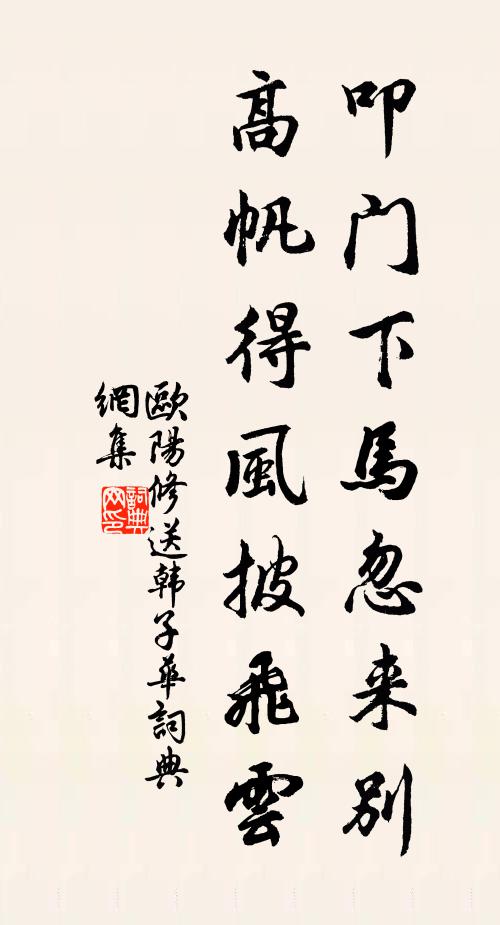 叩门下馬忽来別
高帆得風披飛雲
歐陽修送韩子華詞典
網集
詞典
网印